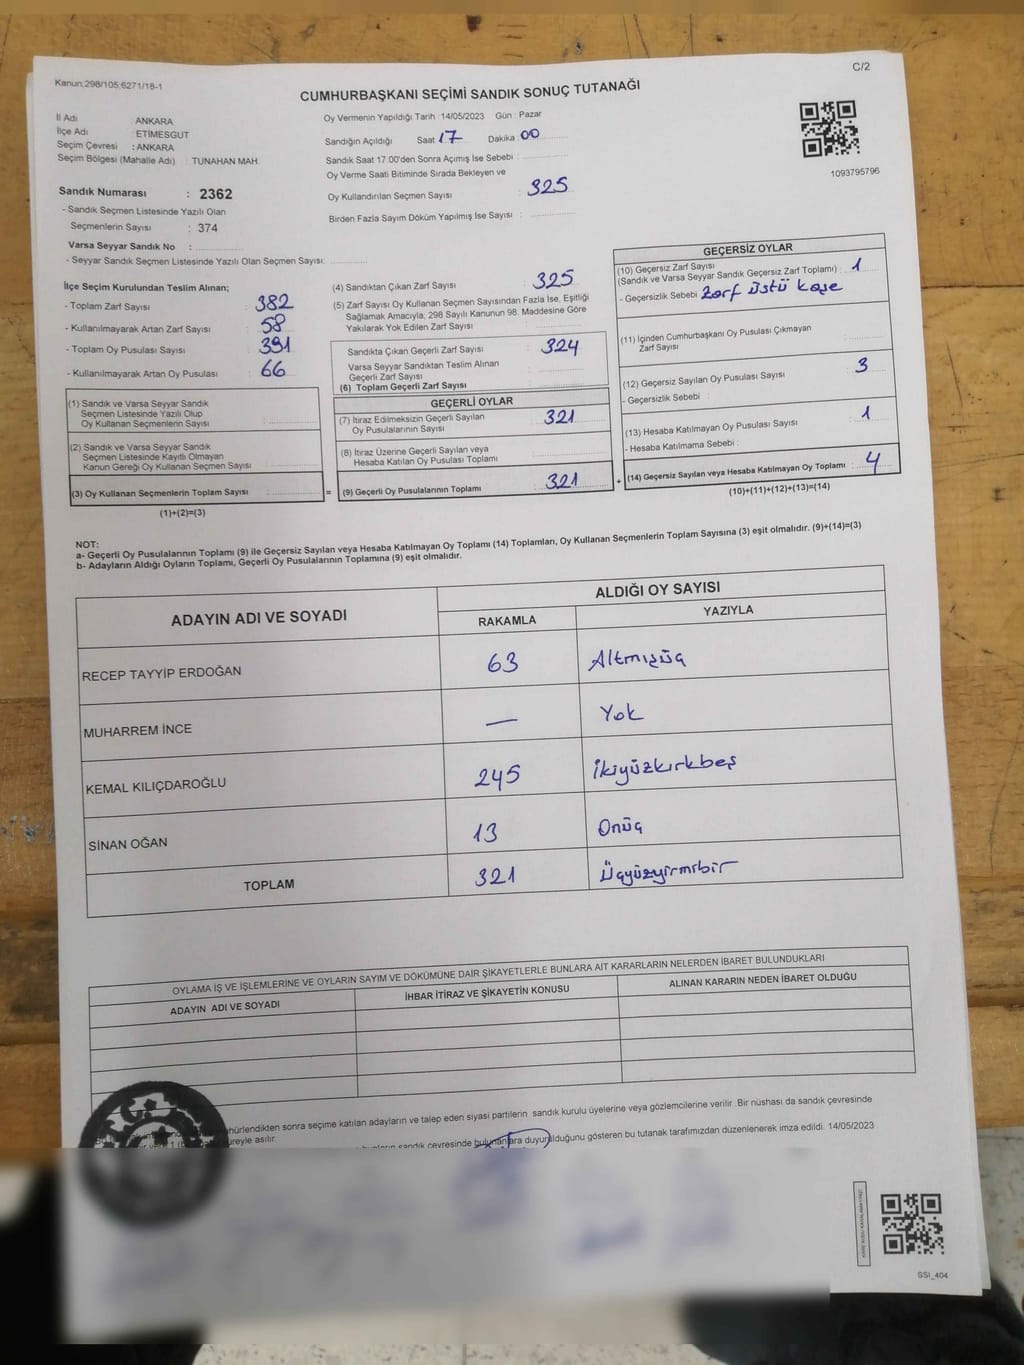 Kanun:298/105;6271/18-1
C/2
CUMHURBAŞKANI SEÇİMİ SANDIK SONUÇ TUTANAĞI
İl Adı ANKARA
İlçe Adı ETİMESGUT
Seçim Çevresi : ANKARA
Seçim Bölgesi (Mahalle Adı) : TUNAHAN MAH.
Sandık Numarası : 2362
- Sandık Seçmen Listesinde Yazılı Olan
Seçmenlerin Sayısı : 374
Varsa Seyyar Sandık No :
- Seyyar Sandık Seçmen Listesinde Yazılı Olan Seçmen Sayısı:
Oy Vermenin Yapıldığı Tarih :14/05/2023 Gün : Pazar
Sandığın Açıldığı Saat 17 Dakika 00
Sandık Saat 17:00'den Sonra Açımış İse Sebebi :
Oy Verme Saati Bitiminde Sırada Bekleyen ve
Oy Kullandırılan Seçmen Sayısı : 325
Birden Fazla Sayım Döküm Yapılmış İse Sayısı :
1093795796
İlçe Seçim Kurulundan Teslim Alınan;
- Toplam Zarf Sayısı : 382
- Kullanılmayarak Artan Zarf Sayısı : 58
- Toplam Oy Pusulası Sayısı : 391
- Kullanılmayarak Artan Oy Pusulası : 66
(1) Sandık ve Varsa Seyyar Sandık
Seçmen Listesinde Yazılı Olup
Oy Kullanan Seçmenlerin Sayısı :
(2) Sandık ve Varsa Seyyar Sandık
Seçmen Listesinde Kayıtlı Olmayan
Kanun Gereği Oy Kullanan Seçmen Sayısı :
(3) Oy Kullanan Seçmenlerin Toplam Sayısı :
(1)+(2)=(3)
(4) Sandıktan Çıkan Zarf Sayısı : 325
(5) Zarf Sayısı Oy Kullanan Seçmen Sayısından Fazla İse, Eşitliği
Sağlamak Amacıyla; 298 Sayılı Kanunun 98. Maddesine Göre
Yakılarak Yok Edilen Zarf Sayısı :
Sandıkta Çıkan Geçerli Zarf Sayısı : 324
Varsa Seyyar Sandıktan Teslim Alınan
Geçerli Zarf Sayısı :
(6) Toplam Geçerli Zarf Sayısı :
GEÇERLİ OYLAR
(7) İtiraz Edilmeksizin Geçerli Sayılan
Oy Pusulalarının Sayısı : 321
(8) İtiraz Üzerine Geçerli Sayılan veya
Hesaba Katılan Oy Pusulası Toplamı :
= (9) Geçerli Oy Pusulalarının Toplamı : 321 +
GEÇERSİZ OYLAR
(10) Geçersiz Zarf Sayısı
(Sandık ve Varsa Seyyar Sandık Geçersiz Zarf Toplamı) : 1
- Geçersizlik Sebebi Zarf üstü kaşe
(11) İçinden Cumhurbaşkanı Oy Pusulası Çıkmayan
Zarf Sayısı :
(12) Geçersiz Sayılan Oy Pusulası Sayısı : 3
- Geçersizlik Sebebi :
(13) Hesaba Katılmayan Oy Pusulası Sayısı : 1
- Hesaba Katılmama Sebebi :
(14) Geçersiz Sayılan veya Hesaba Katılmayan Oy Toplamı : 4
(10)+(11)+(12)+(13)=(14)
NOT:
a- Geçerli Oy Pusulalarının Toplamı (9) ile Geçersiz Sayılan veya Hesaba Katılmayan Oy Toplamı (14) Toplamları, Oy Kullanan Seçmenlerin Toplam Sayısına (3) eşit olmalıdır. (9)+(14)=(3)
b- Adayların Aldığı Oyların Toplamı, Geçerli Oy Pusulalarının Toplamına (9) eşit olmalıdır.
ADAYIN ADI VE SOYADI
ALDIĞI OY SAYISI
RAKAMLA YAZIYLA
RECEP TAYYİP ERDOĞAN 63 Altmışüç
MUHARREM İNCE — Yok
KEMAL KILIÇDAROĞLU 245 İkiyüzkırkbeş
SİNAN OĞAN 13 Onüç
TOPLAM 321 Üçyüzyirmibir
OYLAMA İŞ VE İŞLEMLERİNE VE OYLARIN SAYIM VE DÖKÜMÜNE DAİR ŞİKAYETLERLE BUNLARA AİT KARARLARIN NELERDEN İBARET BULUNDUKLARI
ADAYIN ADI VE SOYADI İHBAR İTİRAZ VE ŞİKAYETİN KONUSU ALINAN KARARIN NEDEN İBARET OLDUĞU
sonra seçime katılan adayların ve talep eden siyasi partilerin sandık kurulu üyelerine veya gözlemcilerine verilir. Bir nüshası da sandık çevresinde
asılır.
sandık çevresinde bulunanlara duyurulduğunu gösteren bu tutanak tarafımızdan düzenlenerek imza edildi. 14/05/2023
SSI_404